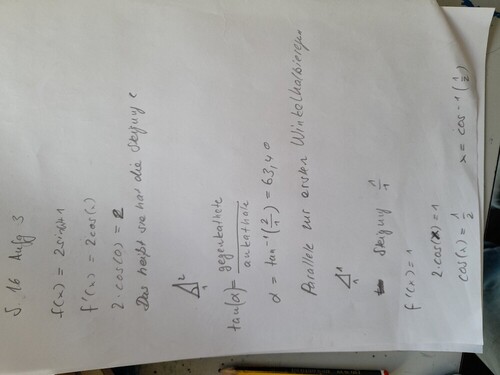 S. 16 Aufg 3
f(x) = 2sin(x)+1
f'(x) = 2cos(x)
2·cos(0) = 2
Das heißt sie hat die Steigung 2
2
1
tan(α) = gegenkathete
ankathete
α = tan⁻¹(2/1) = 63,40
Parallele zur ersten Winkelhalbierenden
1
1
Steigung 1/1
f'(x) = 1
2·cos(x) = 1
cos(x) = 1/2
x = cos⁻¹(1/2)